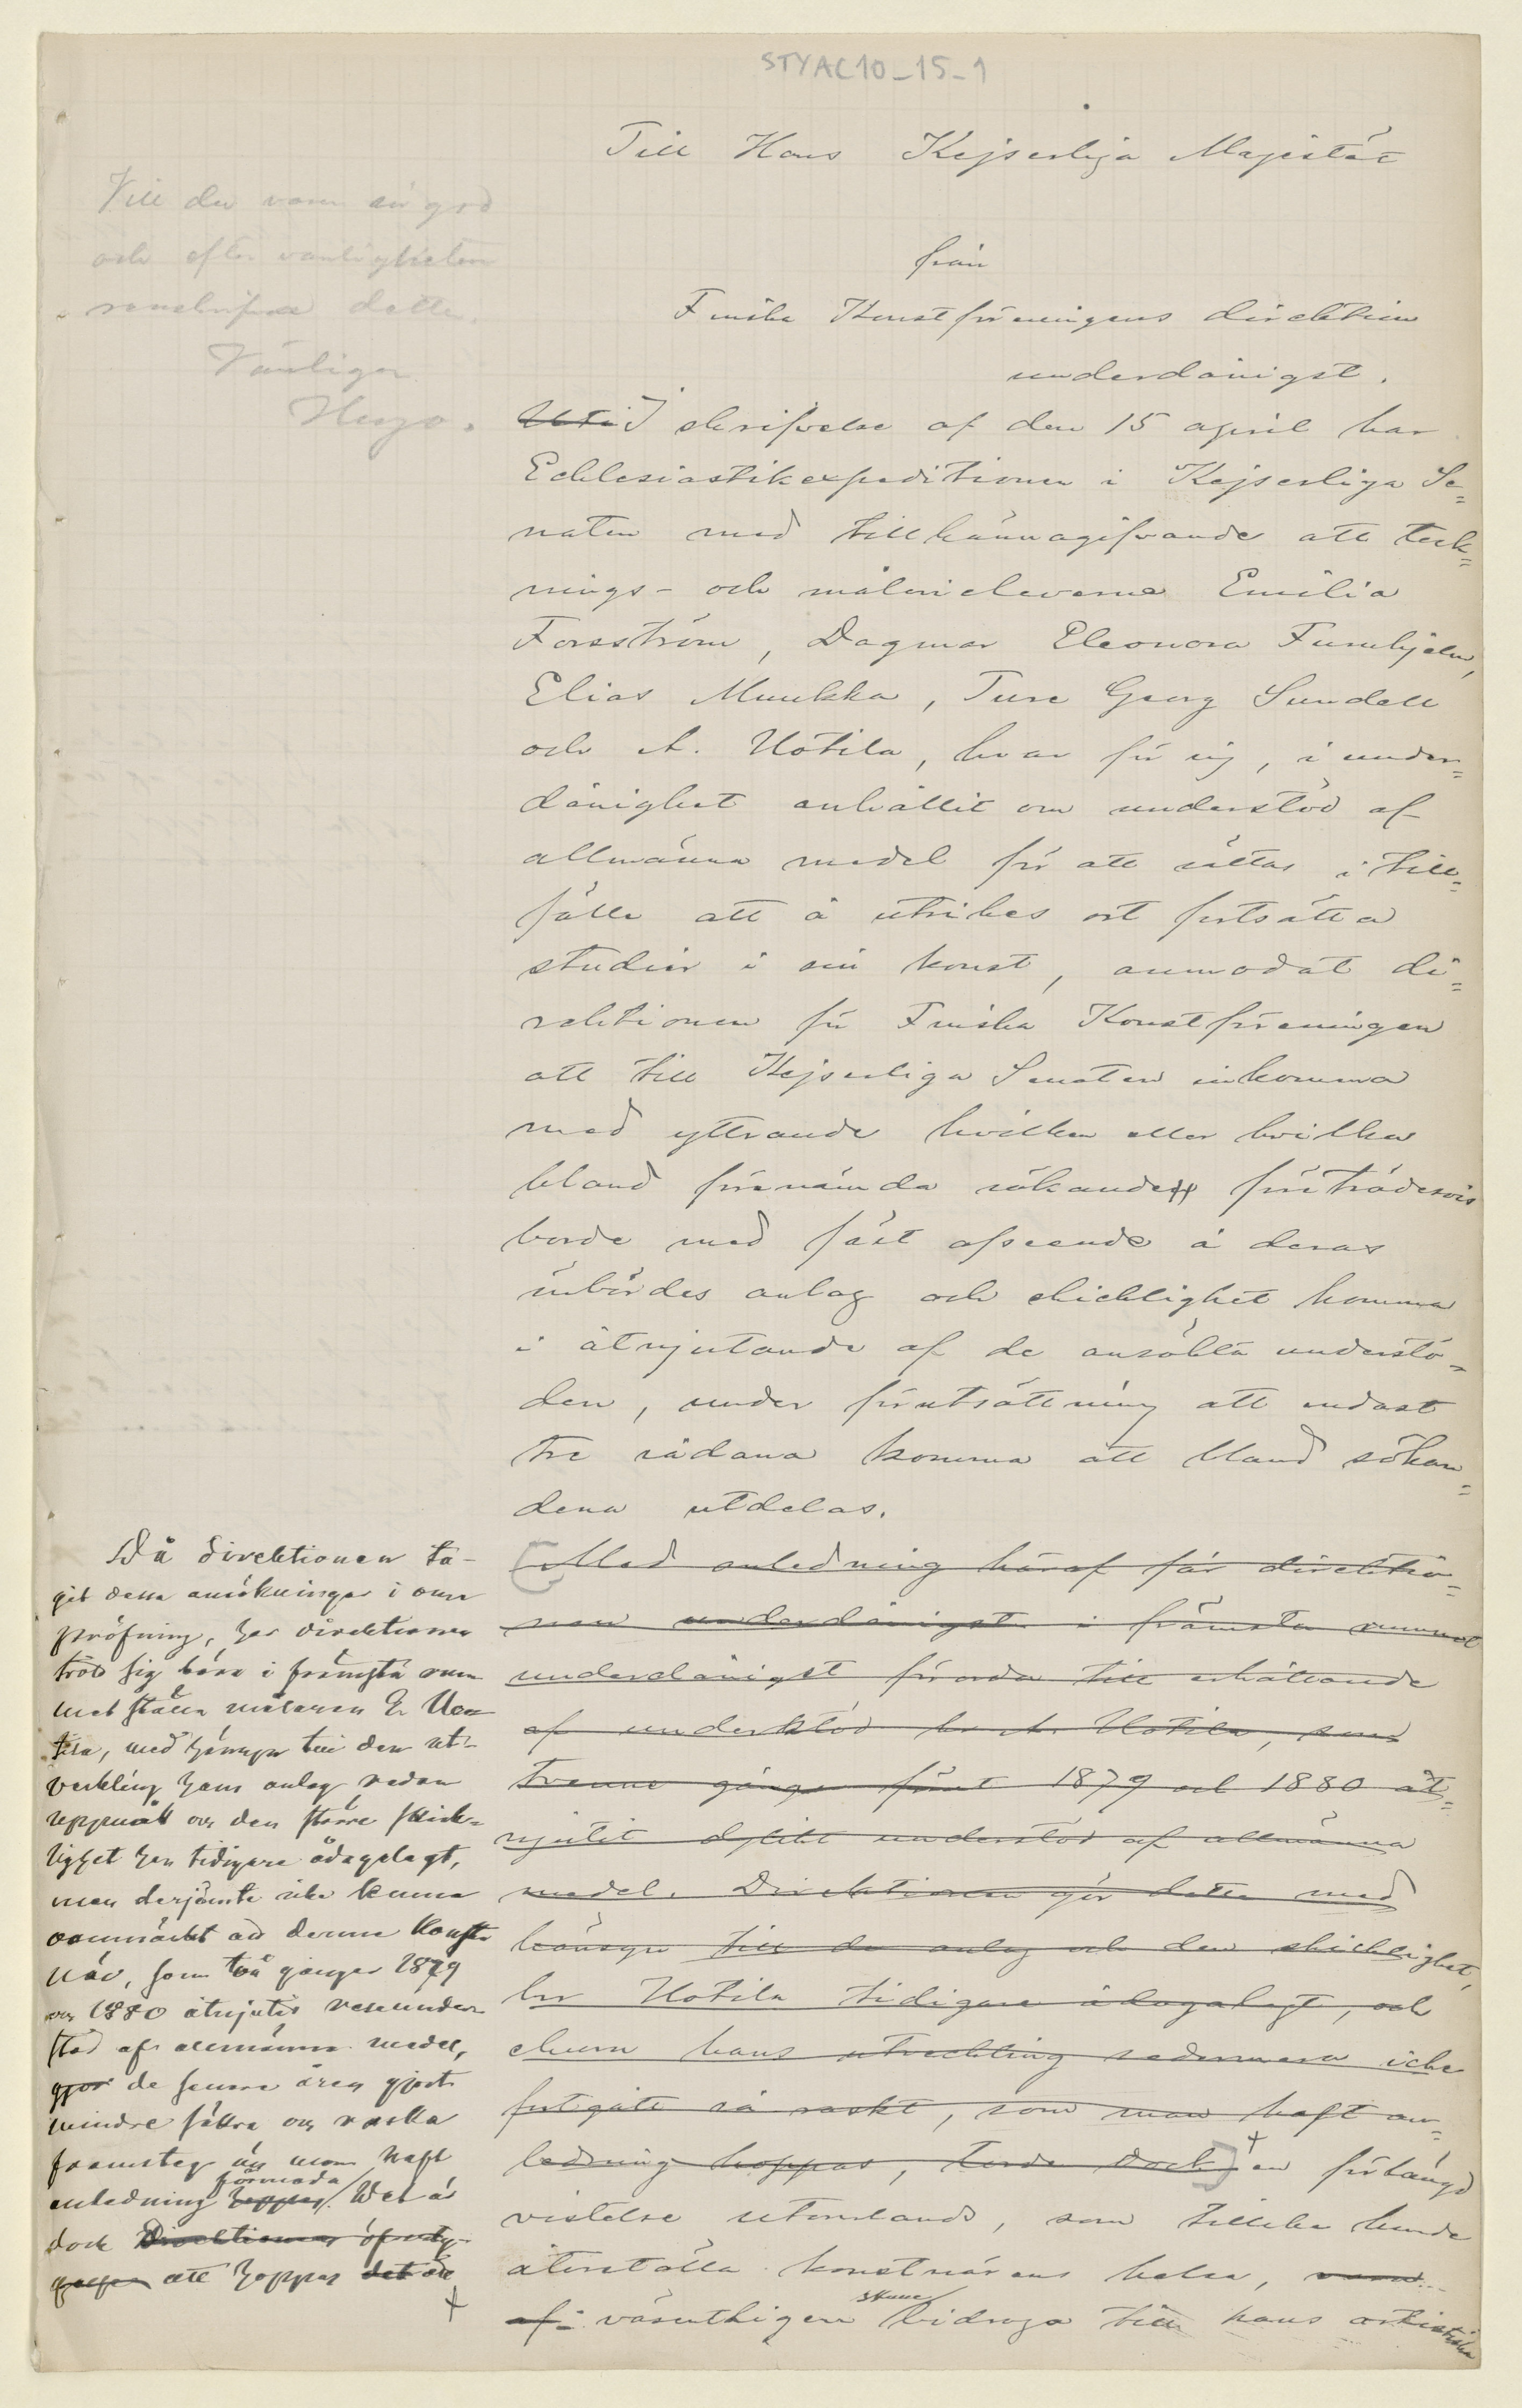 STYAC10_15_1
Till Hans Kejserliga Majestät
Vill du vara så god
och efter vanligheten
renskrifva detta.
Vänligen
Hugo.
från
Finska Konstföreningens direktion
underdånigst.
Uti I skrifvelse af den 15 april har
Ecklesiastikexpeditionen i Kejserliga Se=
naten med tillkännagifvande att teck=
nings- och målerieleverna Emilia
Forsström, Dagmar Eleonora Furuhjelm,
Elias Muukka, Ture Georg Sundell
och A. Uotila, hvar för sig, i under=
dånighet anhållit om understöd af
allmänna medel för att sättas i till=
fälle att å utrikes ort fortsätta
studier i sin konst, anmodat di=
rektionen för Finska Konstföreningen
att till Kejserliga Senaten inkomma
med yttrande hvilken eller hvilka
bland förenämda sökande företrädesvis
borde med fäst afseende å deras
inbördes anlag och skicklighet komma
i åtnjutande af de ansökta understö=
den, under förutsättning att endast
tre sådana komma att bland sökan=
dena utdelas.
Med anledning häraf får direktio=
nen underdånigst i främsta rummet
underdånigst förorda till erhållande
af understöd hr A. Uotila, som
tvenne gånger förut 1879 och 1880 åt=
njutit dylikt understöd af allmänna
medel. Direktionen gör detta med
hänsyn till de anlag och den skicklighet,
hr Uotila tidigare ådagalagt, och
ehuru hans utveckling sedermera icke
fortgått så raskt, som man haft an=
ledning hoppas, torde dock] + en förlängd
vistelse utomlands, som tillika kunde
återställa konstnärens helsa,
af väsentligen skulle bidraga till hans artistiska
Då direktionen ta-
git dessa ansökningar i om
pröfning, har direktionen
trott sig böra i främsta rum
met ställa målaren A. Uo=
tila, med hänsyn till den ut-
veckling hans anlag redan
uppnått och den större skick=
lighet han tidigare ådagalagt,
men derjämte icke kunna
oanmärkt att denne konst
när, som två gånger 1879
och 1880 åtnjutit reseunder
stöd af allmänna medel,
gjort de senare åren gjort
mindre säkra och raska
framsteg än man haft
anledning hoppas förmoda. Det är
dock Direktionens öfverty-
gelse att hoppas det att
+